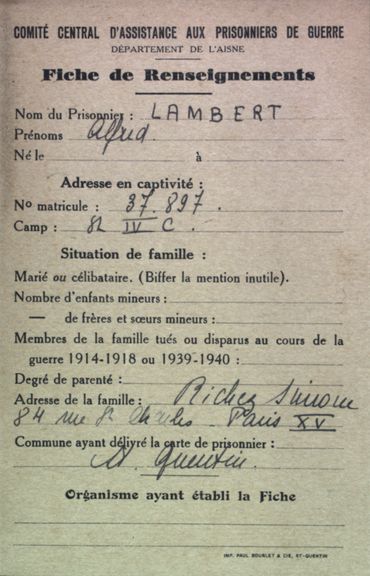 COMITÉ CENTRAL D'ASSISTANCE AUX PRISONNIERS DE GUERRE
DÉPARTEMENT DE L'AISNE
Fiche de Renseignements
Nom du Prisonnier : LAMBERT
Prénoms Alfred.
Né le à
Adresse en captivité :
No matricule : 37.897.
Camp : St IV C.
Situation de famille :
Marié ou célibataire. (Biffer la mention inutile).
Nombre d'enfants mineurs :
— de frères et sœurs mineurs :
Membres de la famille tués ou disparus au cours de la
guerre 1914-1918 ou 1939-1940 :
Degré de parenté :
Adresse de la famille : Richez Simone
84 rue St Charles Paris XV
Commune ayant délivré la carte de prisonnier :
St Quentin.
Organisme ayant établi la Fiche
IMP. PAUL BOURLET & CIE, ST-QUENTIN